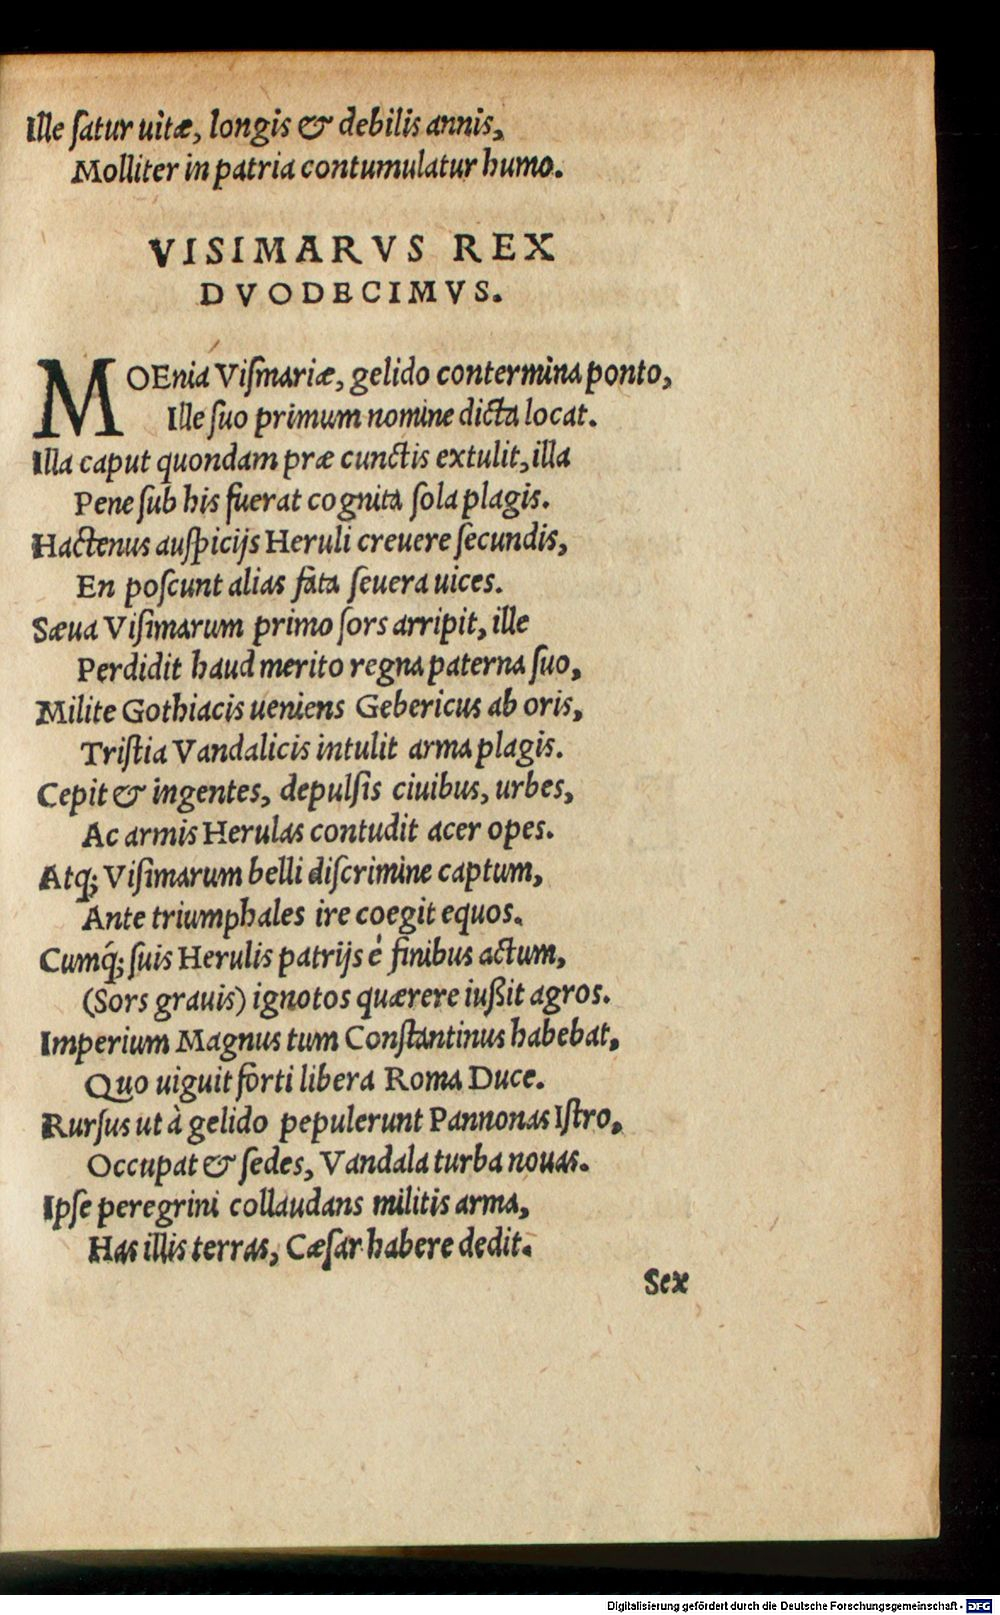 Ille ſatur uitæ, longis & debilis annis,
Molliter in patria contumulatur humo.
VISIMARVS REX
DVODECIMVS.
MOEnia Viſmariæ, gelido contermina ponto,
Ille ſuo primum nomine dicta locat.
Illa caput quondam præ cunctis extulit, illa
Pene ſub his fuerat cognita ſola plagis.
Hactenus auſpicijs Heruli creuere ſecundis,
En poſcunt alias fata ſeuera uices.
Sæua Viſimarum primo ſors arripit, ille
Perdidit haud merito regna paterna ſuo,
Milite Gothiacis ueniens Gebericus ab oris,
Triſtia Vandalicis intulit arma plagis.
Cepit & ingentes, depulſis ciuibus, urbes,
Ac armis Herulas contudit acer opes.
Atq; Viſimarum belli diſcrimine captum,
Ante triumphales ire coegit equos.
Cumq́; ſuis Herulis patrijs è finibus actum,
(Sors grauis) ignotos quærere iußit agros.
Imperium Magnus tum Conſtantinus habebat,
Quo uiguit forti libera Roma Duce.
Rurſus ut à gelido pepulerunt Pannonas Iſtro,
Occupat & ſedes, Vandala turba nouas.
Ipſe peregrini collaudans militis arma,
Has illis terras, Cæſar habere dedit.
Sex
Digitalisierung gefördert durch die Deutsche Forschungsgemeinschaft - DFG